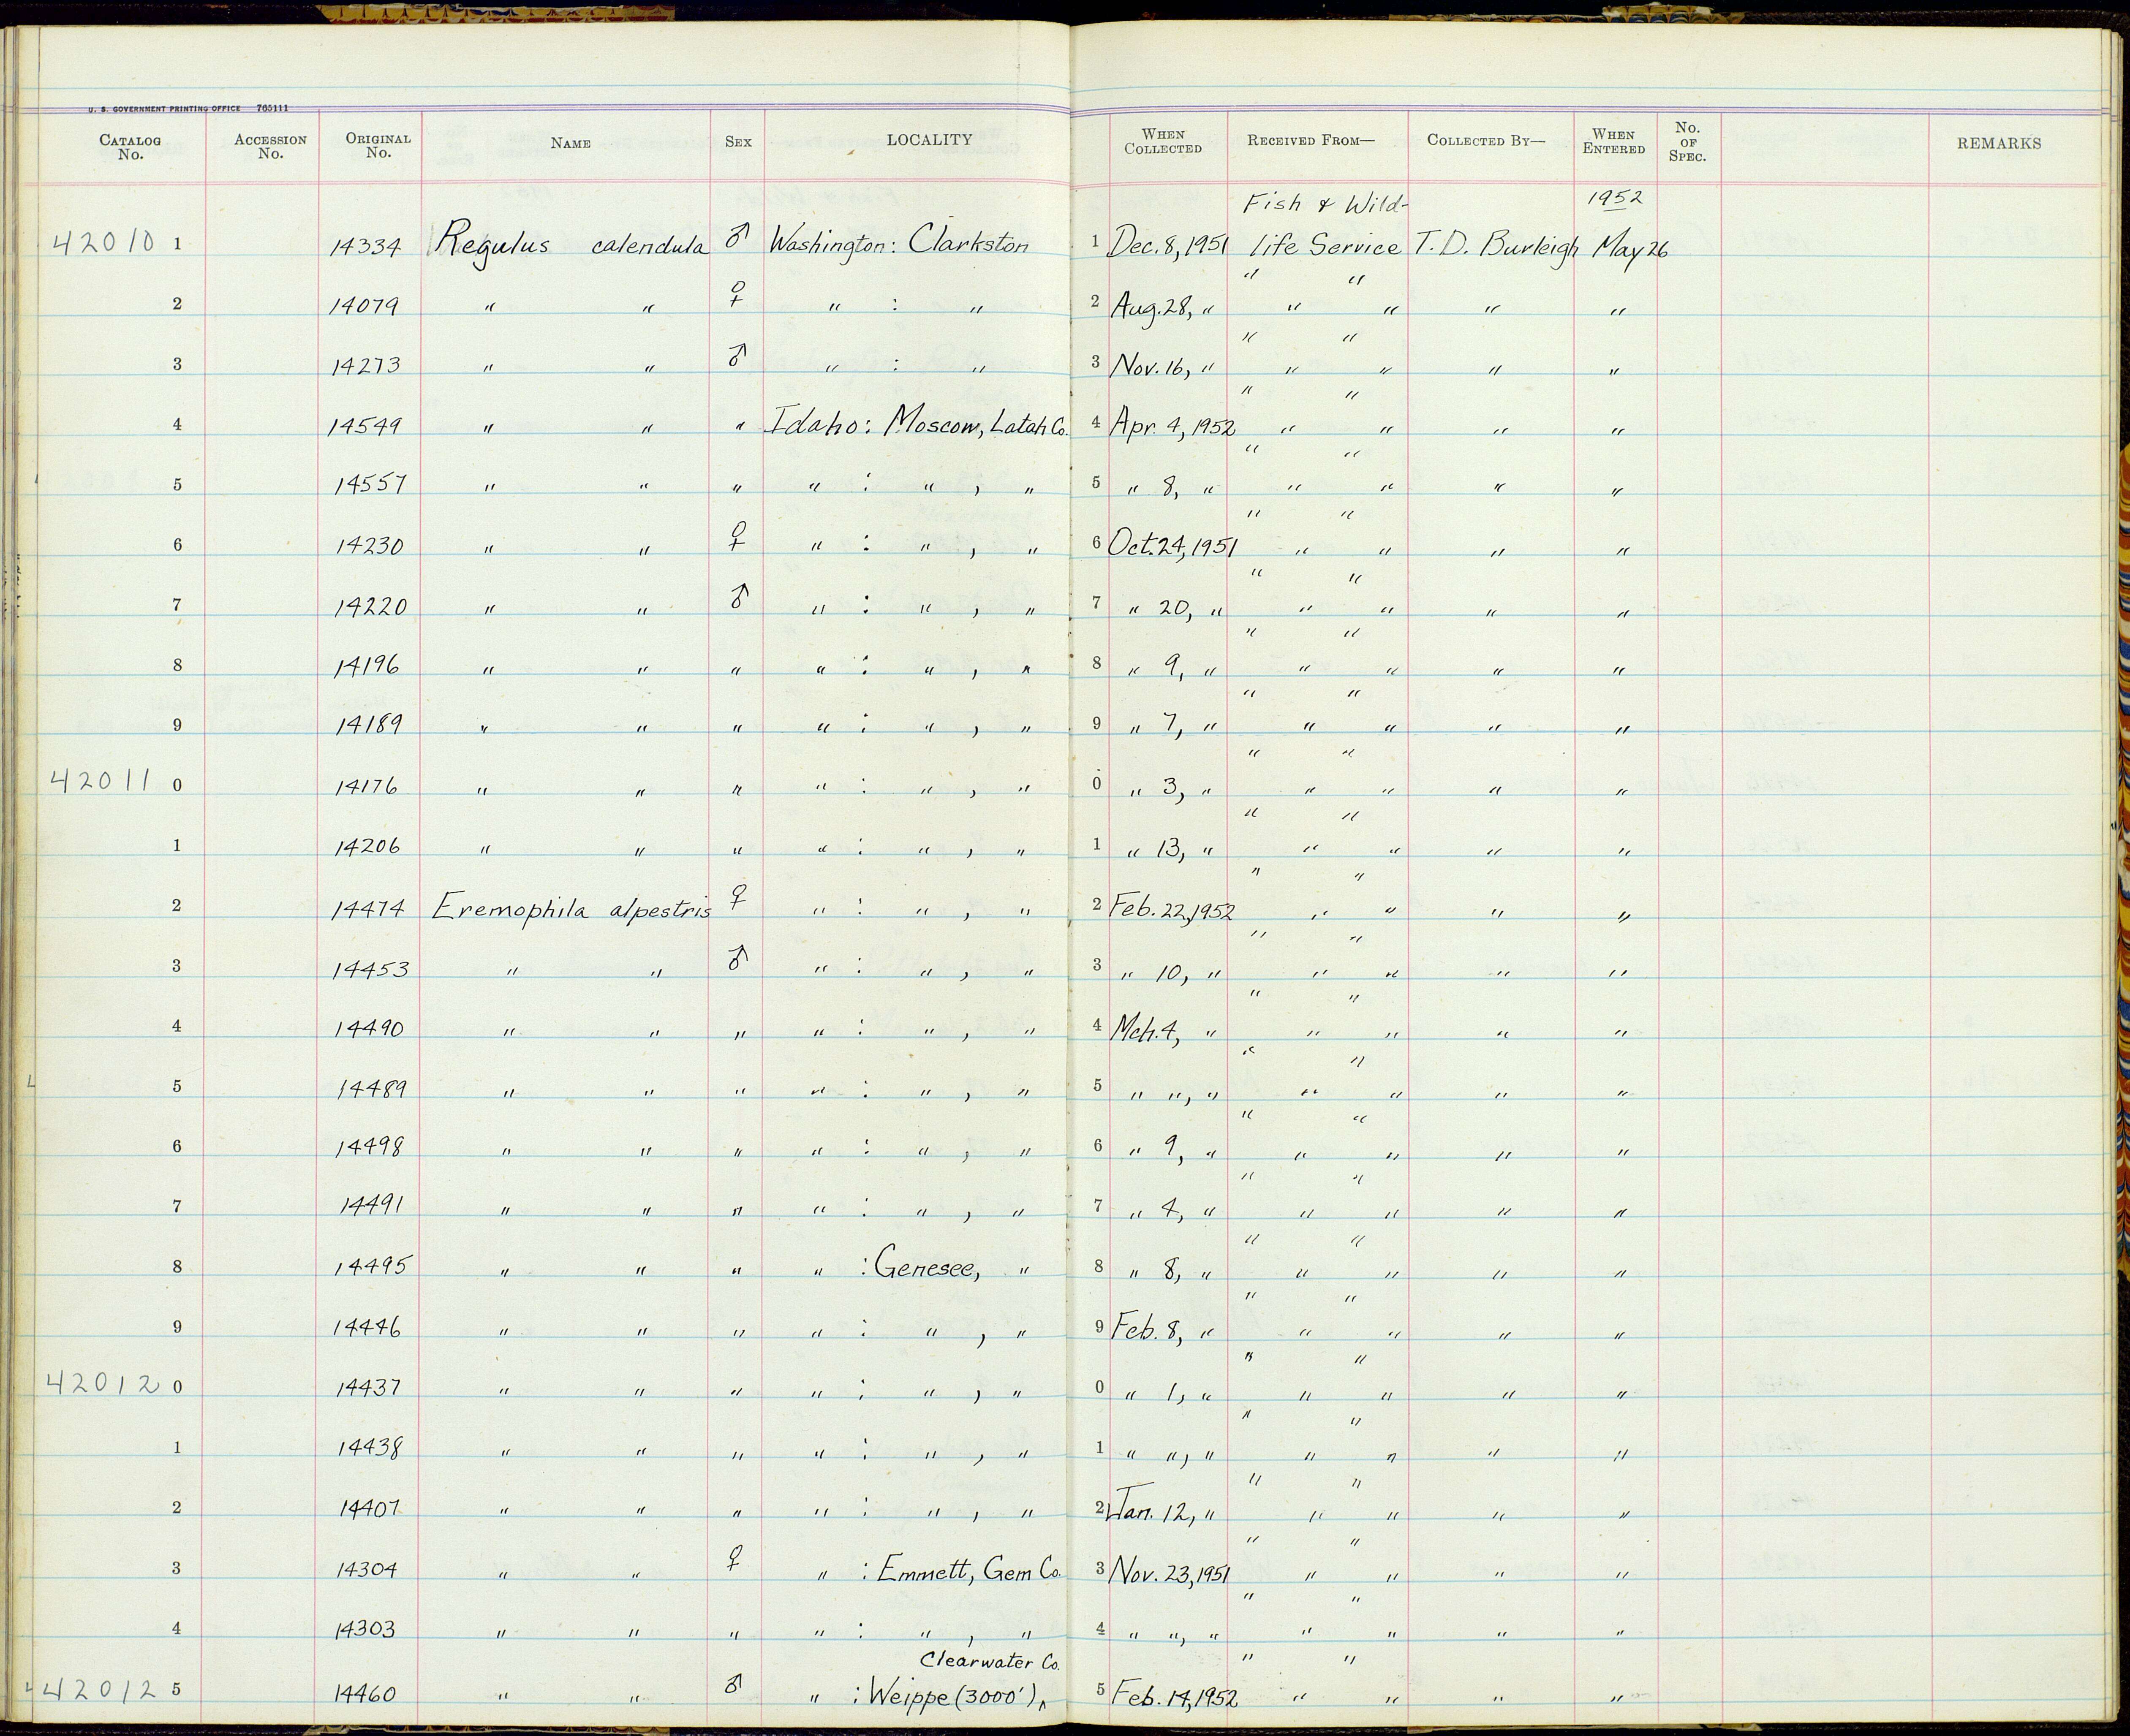 U. S. GOVERNMENT PRINTING OFFICE 765111
CATALOG No. ACCESSION No. ORIGINAL No. NAME SEX LOCALITY WHEN COLLECTED RECEIVED FROM— COLLECTED BY— WHEN ENTERED No. OF SPEC. REMARKS
Fish & Wild- 1952
42010 1 14334 Regulus calendula ♂ Washington: Clarkston 1 Dec. 8, 1951 life Service T. D. Burleigh May 26
" "
2 14079 " " ♀ " : " 2 Aug. 28, " " " " "
" "
3 14273 " " ♂ " : " 3 Nov. 16, " " " " "
" "
4 14549 " " " Idaho: Moscow, Latah Co. 4 Apr. 4, 1952 " " " "
" "
5 14557 " " " " : " , " 5 " 8, " " " " "
" "
6 14230 " " ♀ " : " , " 6 Oct. 24, 1951 " " " "
" "
7 14220 " " ♂ " : " , " 7 " 20, " " " " "
" "
8 14196 " " " " : " , " 8 " 9, " " " " "
" "
9 14189 " " " " : " , " 9 " 7, " " " " "
" "
42011 0 14176 " " " " : " , " 0 " 3, " " " " "
" "
1 14206 " " " " : " , " 1 " 13, " " " " "
" "
2 14474 Eremophila alpestris ♀ " : " , " 2 Feb. 22, 1952 " " " "
" "
3 14453 " " ♂ " : " , " 3 " 10, " " " " "
" "
4 14490 " " " " : " , " 4 Mch. 4, " " " " "
" "
5 14489 " " " " : " , " 5 " ", " " " " "
" "
6 14498 " " " " : " , " 6 " 9, " " " " "
" "
7 14491 " " " " : " , " 7 " 4, " " " " "
" "
8 14495 " " " " : Genesee, " 8 " 8, " " " " "
" "
9 14446 " " " " : " , " 9 Feb. 8, " " " " "
" "
42012 0 14437 " " " " : " , " 0 " 1, " " " " "
" "
1 14438 " " " " : " , " 1 " ", " " " " "
" "
2 14407 " " " " : " , " 2 Jan. 12, " " " " "
" "
3 14304 " " ♀ " : Emmett, Gem Co. 3 Nov. 23, 1951 " " " "
" "
4 14303 " " " " : " , " 4 " ", " " " " "
Clearwater Co. " "
42012 5 14460 " " ♂ " : Weippe (3000'), ^ 5 Feb. 14, 1952 " " " "